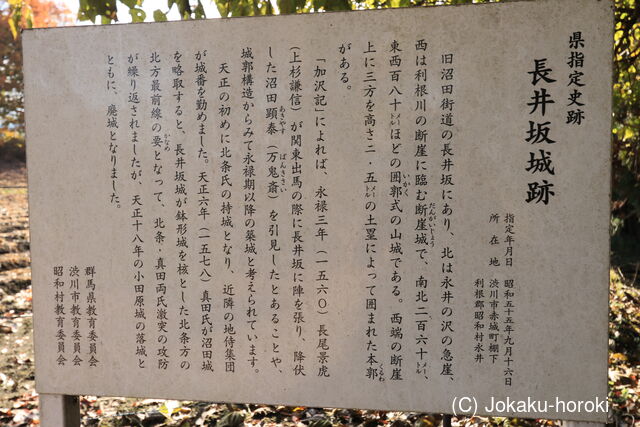 県指定史跡
長井坂城跡
指定年月日　昭和五十五年九月十六日
所在地　渋川市赤城町棚下
利根郡昭和村永井
旧沼田街道の長井坂にあり、北は永井の沢の急崖、
西は利根川の断崖に臨む断崖城で、南北二百六十メートル、
東西百八十メートルほどの囲郭式の山城である。西端の断崖
上に三方を高さ二・五メートルの土塁によって囲まれた本郭
がある。
「加沢記」によれば、永禄三年（一五六〇）長尾景虎
（上杉謙信）が関東出馬の際に長井坂に陣を張り、降伏
した沼田顕泰（万鬼斎）を引見したとあることや、
城郭構造からみて永禄期以降の築城と考えられています。
天正の初めに北条氏の持城となり、近隣の地侍集団
が城番を勤めました。天正六年（一五七八）真田氏が沼田城
を略取すると、長井坂城が鉢形城を核とした北条方の
北方最前線の要となって、北条・真田両氏激突の攻防
が繰り返されましたが、天正十八年の小田原城の落城と
ともに、廃城となりました。
群馬県教育委員会
渋川市教育委員会
昭和村教育委員会
(C) Jokaku-horoki